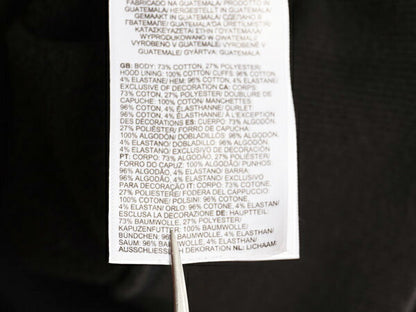 FABRICADO NA GUATEMALA/ PRODOTTO IN
GUATEMALA/ HERGESTELLT IN GUATEMALA/
GEMAAKT IN GUATEMALA/ СДЕЛАНО В
ГВАТЕМАЛЕ/
ΚΑΤΑΣΚΕΥΑΖΕΤΑΙ ΣΤΗ ΓΟΥΑΤΕΜΑΛΑ/
WYPRODUKOWANO W GUATEMALA/
VYROBENO V GUATEMALE/ GYÁRTVA: GUATEMALA
GB: BODY: 73% COTTON, 27% POLYESTER/
HOOD LINING: 100% COTTON/ CUFFS: 96% COTTON,
4% ELASTANE/ HEM: 96% COTTON, 4% ELASTANE/
EXCLUSIVE OF DECORATION CA: CORPS:
73% COTON, 27% POLYESTER/ DOUBLURE DE
CAPUCHE: 100% COTON/ MANCHETTES:
96% COTON, 4% ÉLASTHANNE/ OURLET:
96% COTON, 4% ÉLASTHANNE/ À L'EXCEPTION
DES DÉCORATIONS ES: CUERPO: 73% ALGODÓN,
27% POLIÉSTER/ FORRO DE CAPUCHA:
100% ALGODÓN/ DOBLADILLOS: 96% ALGODÓN,
4% ELASTANO/ BAJO: 96% ALGODÓN,
4% ELASTANO/ EXCLUSIVO DE DECORACIÓN
PT: CORPO: 73% ALGODÃO, 27% POLIÉSTER/
FORRO DO CAPUZ: 100% ALGODÃO/ PUNHOS:
96% ALGODÃO, 4% ELASTANO/ BARRA:
96% ALGODÃO, 4% ELASTANO/ EXCLUSIVO
PARA DECORAÇÃO IT: CORPO: 73% COTONE,
27% POLIESTERE/ FODERA DEL CAPPUCCIO:
100% COTONE/ POLSINI: 96% COTONE,
4% ELASTAN/ ORLO: 96% COTONE, 4% ELASTAN/
ESCLUSA LA DECORAZIONE DE: HAUPTTEIL:
73% BAUMWOLLE, 27% POLYESTER/
KAPUZENFUTTER: 100% BAUMWOLLE/
BÜNDCHEN: 96% BAUMWOLLE, 4% ELASTAN/
SAUM: 96% BAUMWOLLE, 4% ELASTAN/
AUSSCHLIESSLICH DEKORATION NL: LICHAAM: